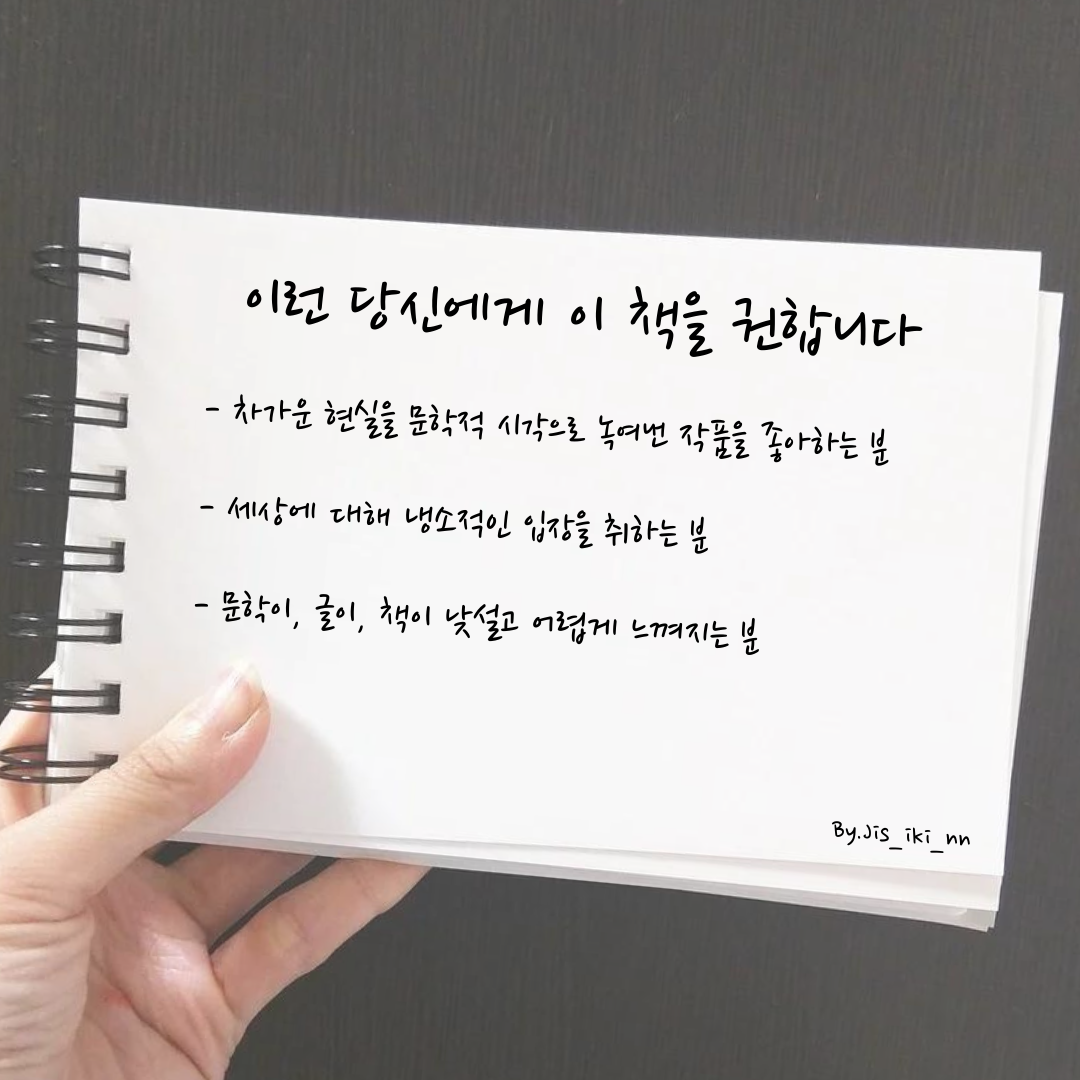 이런 당신에게 이 책을 권합니다
- 차가운 현실을 문학적 시각으로 녹여낸 작품을 좋아하는 분
- 세상에 대해 냉소적인 입장을 취하는 분
- 문학이, 글이, 책이 낯설고 어렵게 느껴지는 분
By.Jis_iki_nn